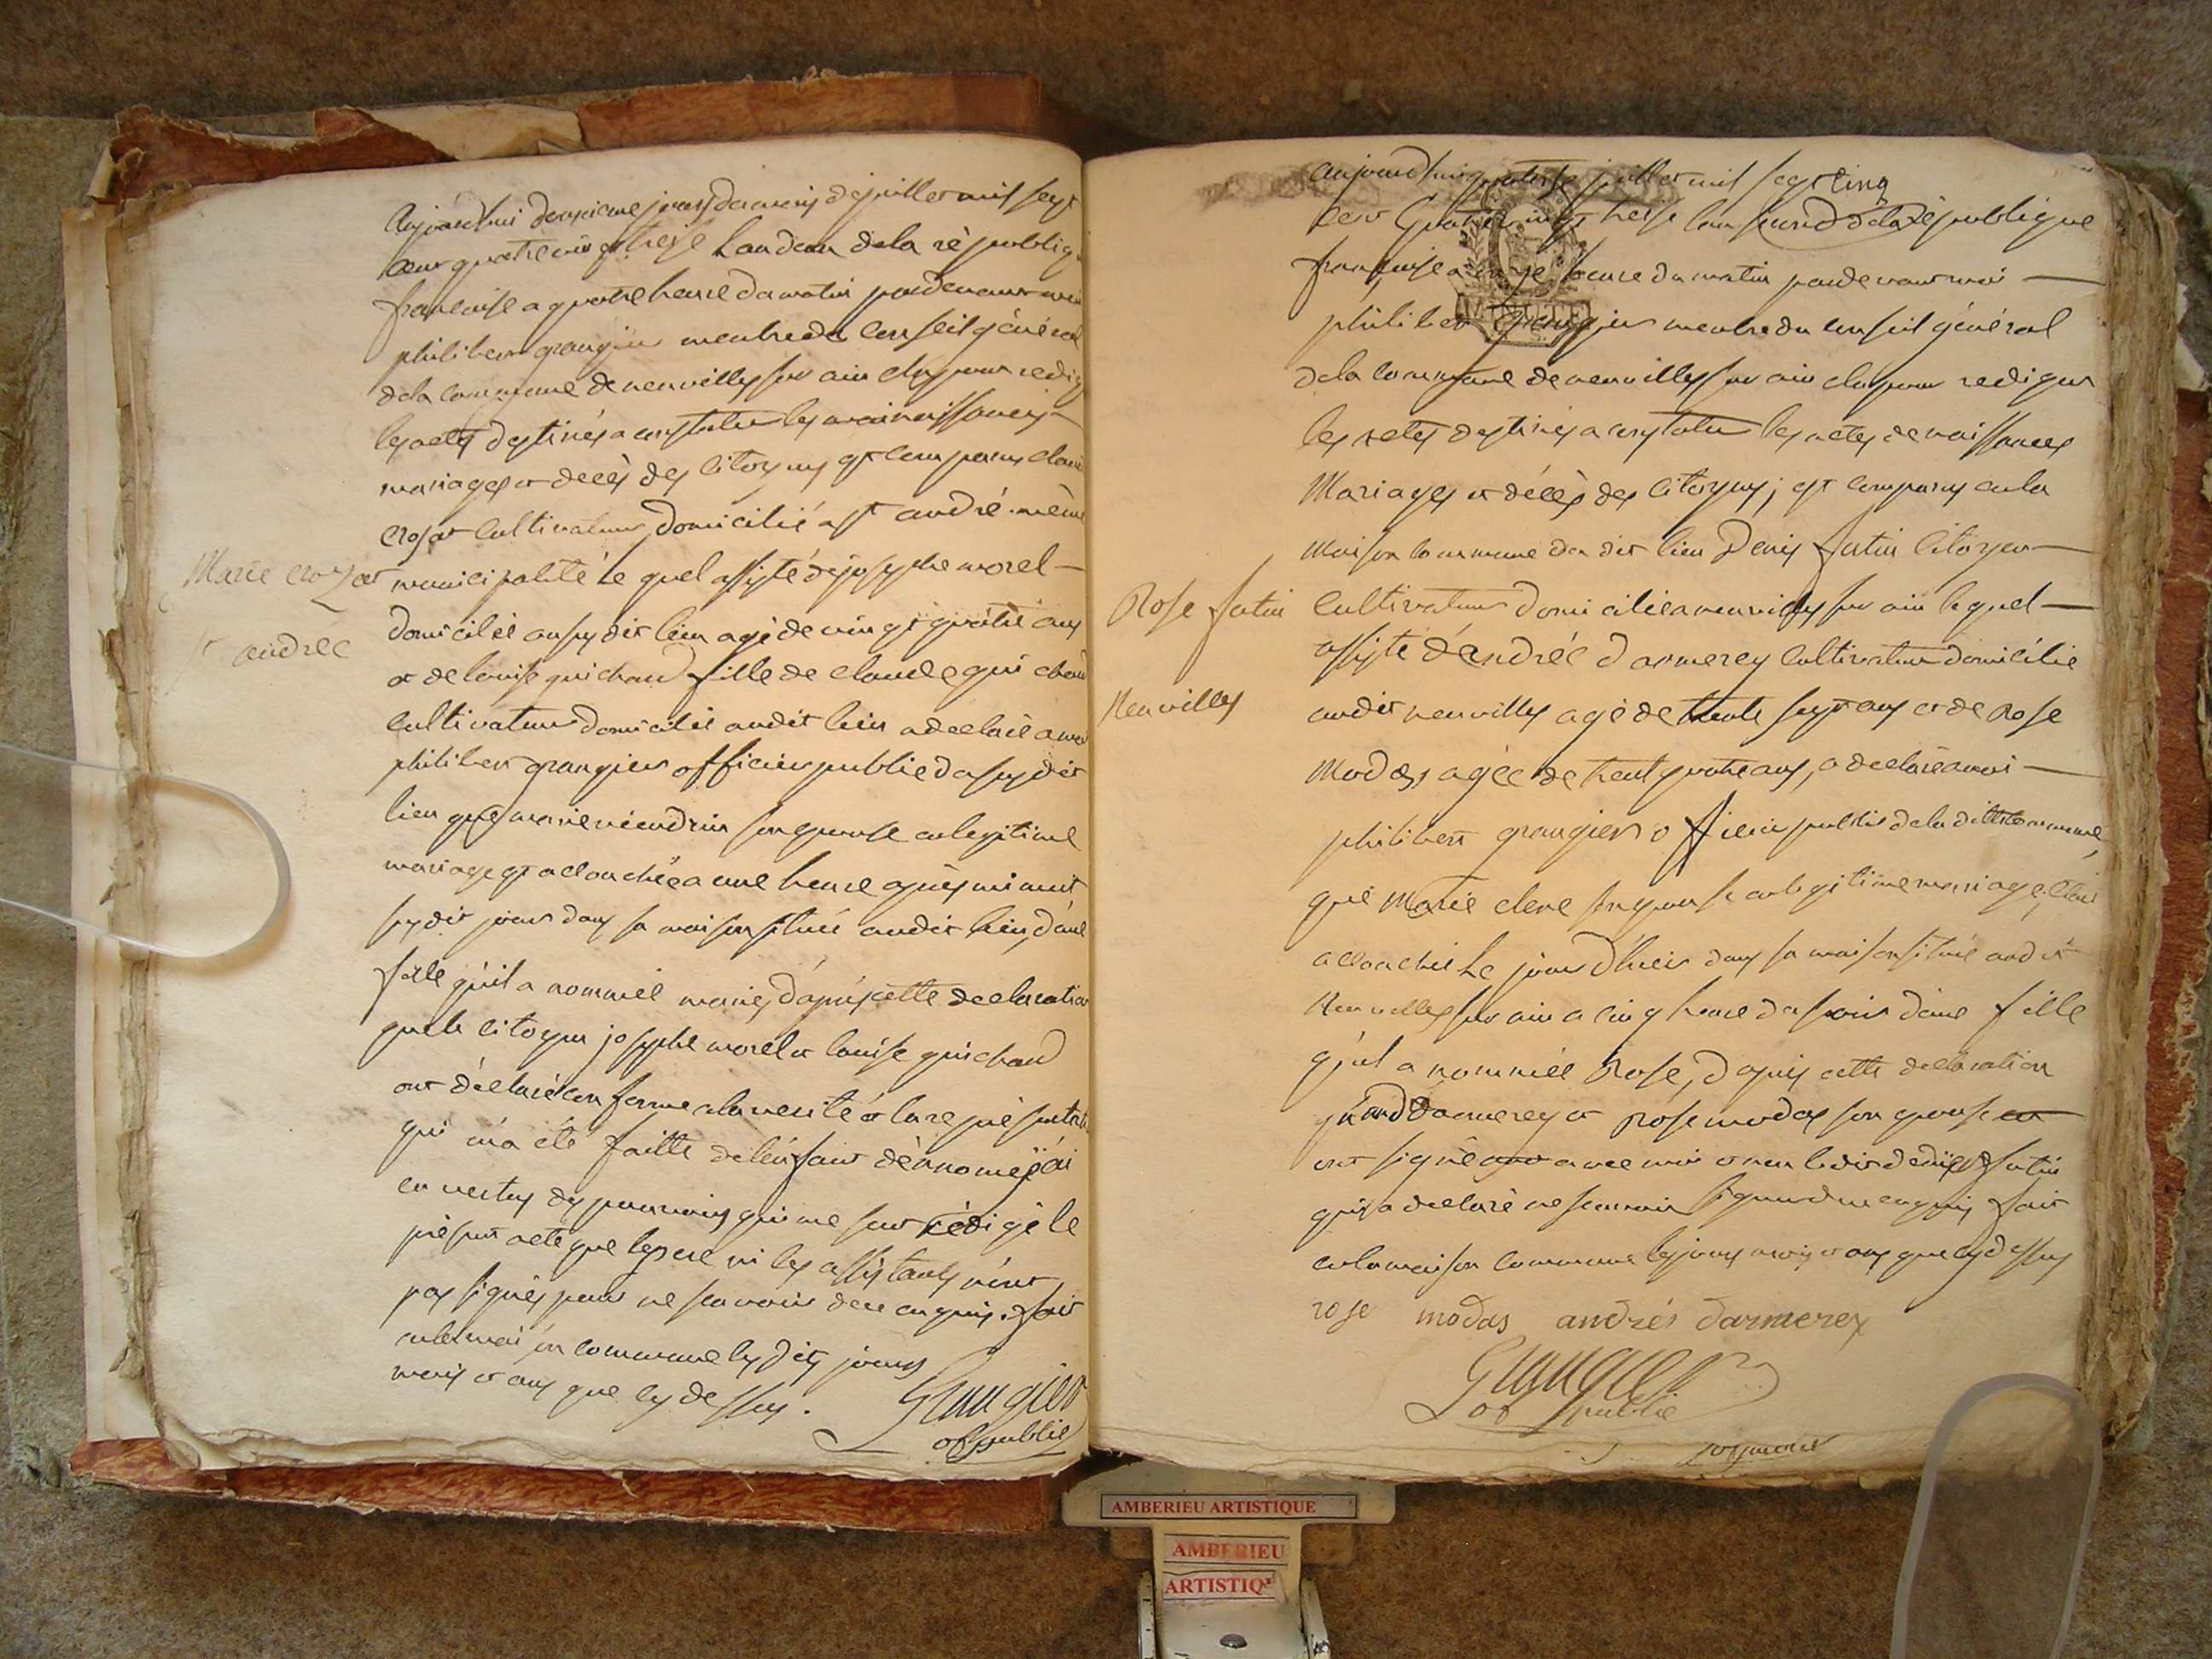 aujourdhui deuxieme jours du mois de juillet mil sept
cent quatre vingt treize Lan deux dela rèpubliq
francaise a quatre heure du matin pardevant moi
philibert grangier membre du Conseil général
dela commune de neuville sur ain elu pour redig
les actes destinés a constater les naissances
mariages et decès des citoyens est comparus claude
crozat Cultivateur domicilié a st andré même
Marie crozat
municipalité le quel assisté de josephe morel
st andrée
domicilié au sy dit lieu agé de vingt quatre ans
et de louise guichard fille de claude guichard
cultivateur domicilié audit lieu a declaré a moi
philibert grangier officier public du sy dit
lieu que marie son epouse en legitime
mariage est acouchée a une heure après minuit
sy dit jours dans sa maison située audit lieu, d'une
fille quil a nommée marie, d'après cette declaration
que le citoyen josephe morel et louise guichard
ont dèclaré conforme a la verité et la représentation
qui m'a été faitte de l'enfant dénnomé j'ai
en vertus des pouvoirs qui me sont rédigé le
présent acte que le pere ni les assistants n'ont
pas signés pour ne scavoir de ce enquis. fait
en la maison commune les dits jours
mois et ans que cy dessus.
Grangier
of public
aujourdhui quatorze juillet mil sept cinq
cent Quatre vingt treise lan second de la République
française a onze heure du matin pardevant moi
philibert Grangier membre du conseil général
dela commune de neuville sur ain elu pour rediger
les actes destinés a constater les actes de naissances
Mariages et décès des citoyens, est comparus en la
maison commune du dit lieu Denis futin citoyen
Rose futin
Cultivateur domicilié a neuville sur ain le quel
assisté d'andrée darmerey Cultivateur domicilié
Neuville
audit neuville agé de trente sept ans et de Rose
modas agée de trent quatre ans, a declaré a moi
philibert grangier officier public de la ditte commune
que Marie clere son epouse en legitime mariage, était
acouchée Le jour d'hier dans sa maison située audit
Neuville sur ain a cinq heure du soir d'une fille
qu'il a nommée Rose, d'après cette declaration
qu'and darmerey et Rose modas son epouse
ont signé avec moi et non ledit denis futin
qui a declaré ne scavoir signer de ce enquis fait
en la maison commune les jours mois et ans que cy dessus
rose modas andrés darmerey
Grangier
of public
AMBERIEU ARTISTIQUE
AMBERIEU
ARTISTIQ